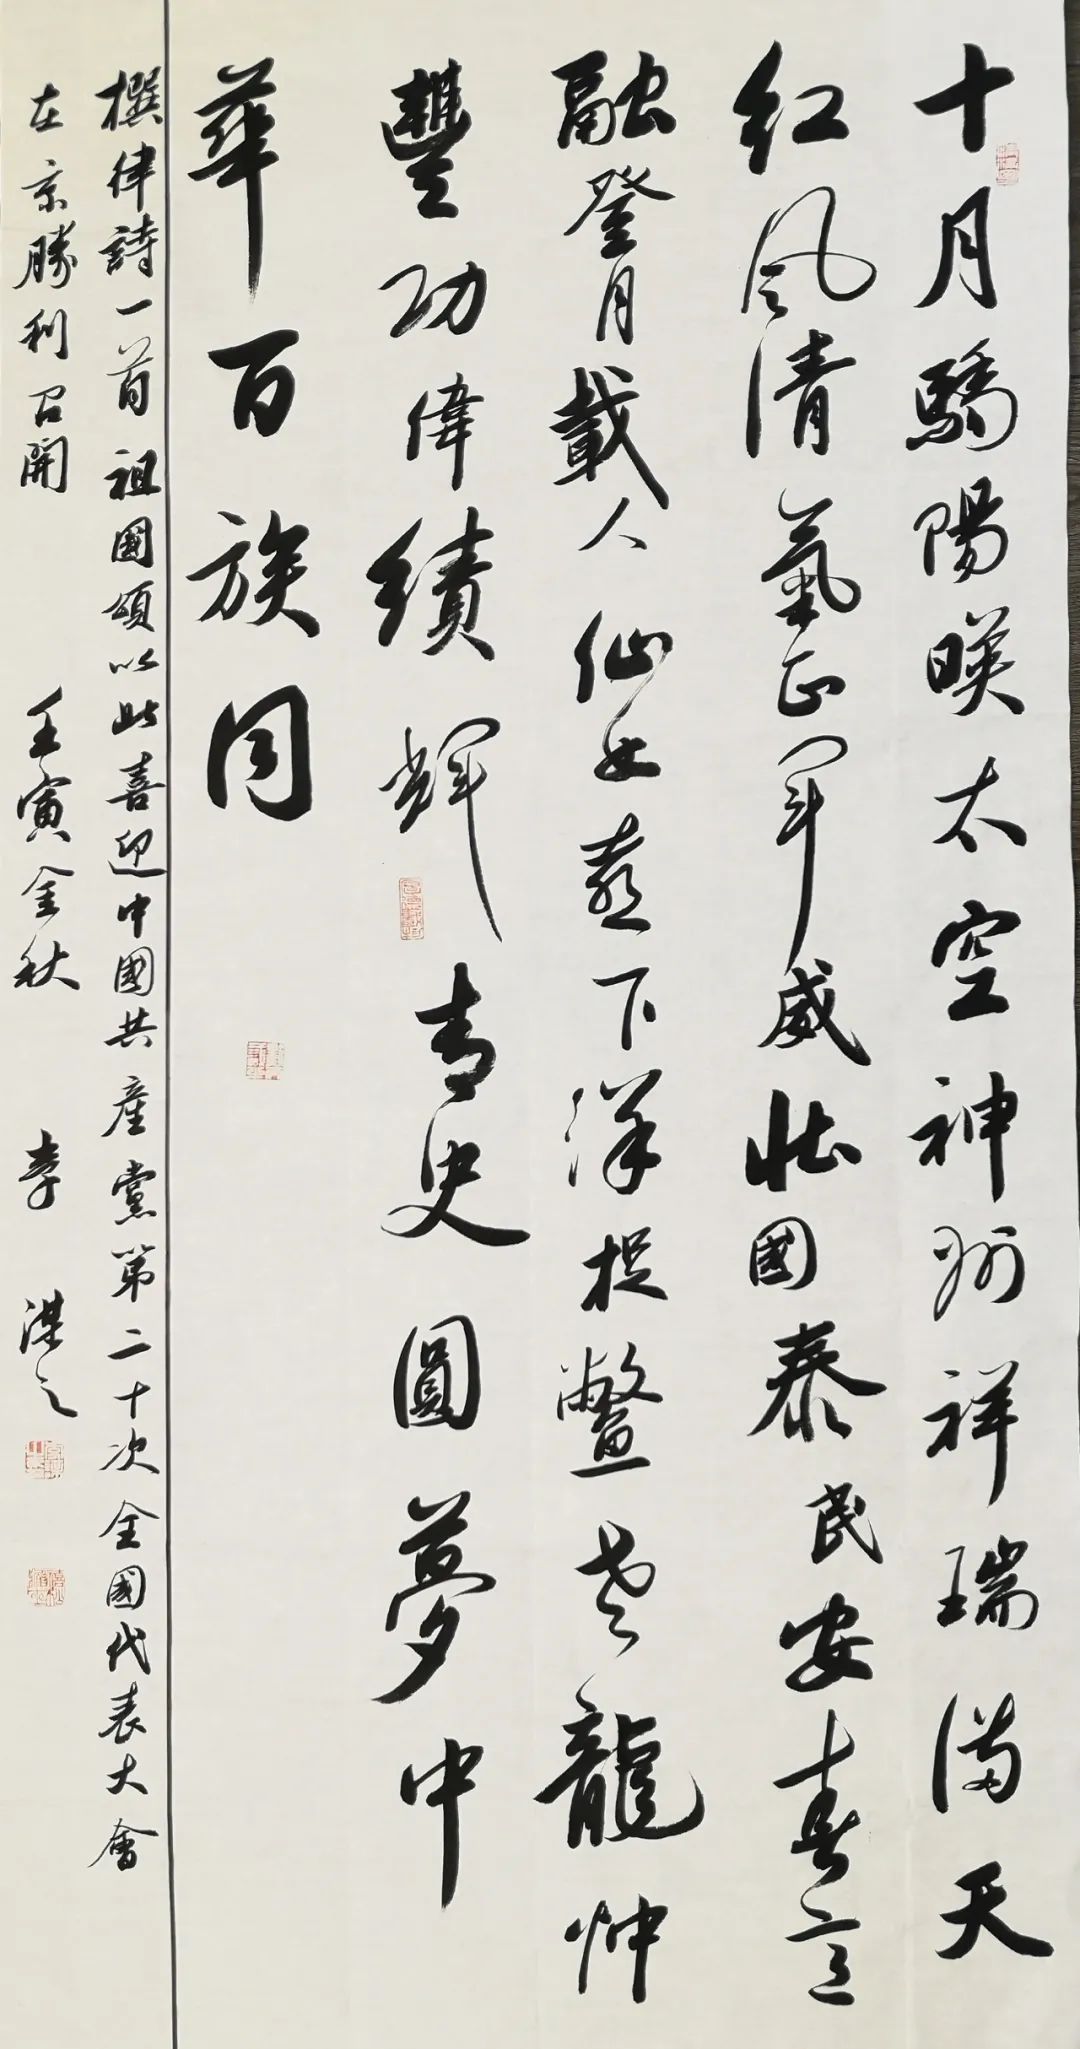 十月驕陽暎太空神州祥瑞滿天
紅風清氣正軍威壯國泰民安喜意
融登月載人仙女慕下洋捉鱉老龍忡
豐功偉績輝青史圓夢中
華百族同
撰律詩一首祖國頌以此喜迎中國共產黨第二十次全國代表大會
在京勝利召開 壬寅金秋 李洪之